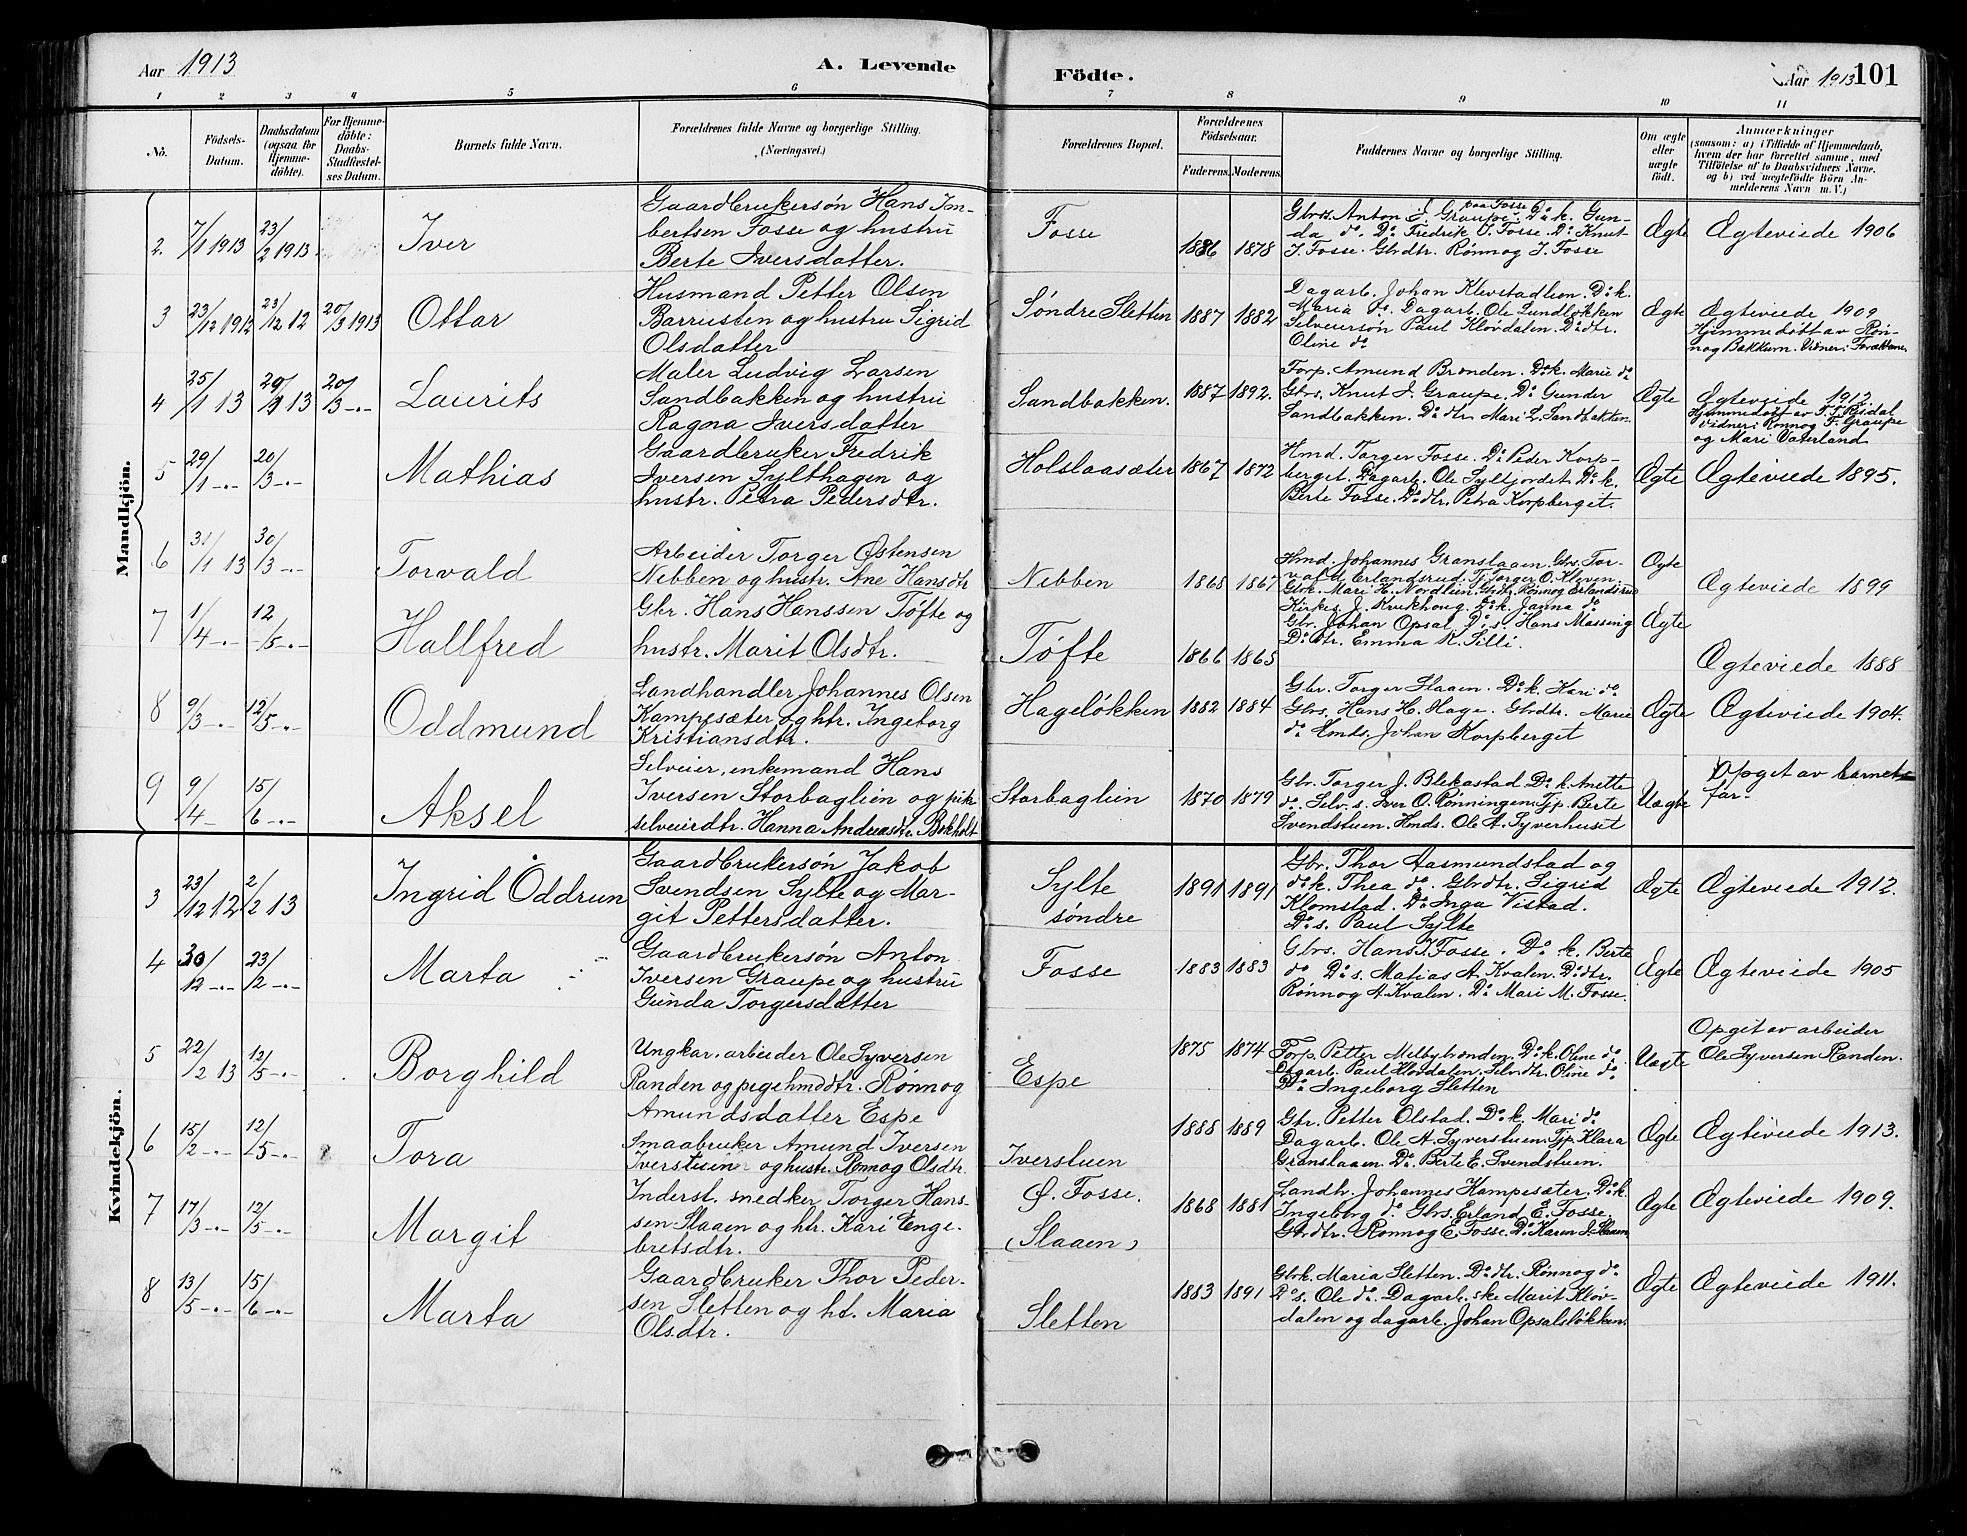 Aar 1913
A. Levende
Födte.
Aar 1913 101
1 2 3 4 5 6 7 8 9 10 11
No.
Födsels-
Datum.
Daabsdatum
(ogsaa for
Hjemme-
döbte).
For Hjemme-
döbte:
Daabs-
Stadfæstel-
ses Datum.
Barnets fulde Navn.
Forældrenes fulde Navne og borgerlige Stilling.
(Næringsvei.)
Forældrenes Bopæl.
Forældrenes
Födselsaar.
Faderens. Moderens.
Faddernes Navne og borgerlige Stilling.
Om ægte
eller
uægte
födt.
Anmærkninger
(saasom: a) i Tilfælde af Hjemmedaab,
hvem der har forrettet samme, med
Tilföielse af to Daabsvidners Navne,
og b) ved uægtefödte Börn An-
melderens Navn m. V.)
Mandkjön.
2. 7/1 1913 23/2 1913 Iver
Gaardbrukersøn Hans Im-
bertsen Fosse og hustru
Berte Iversdatter.
Fosse 1886 1878
Gbrs. Anton I. Graupe paa Fosse. Do k. Gun-
da do. Do Fredrik I. Fosse. Do Knut
I. Fosse. Gbrdtr. Rønnog I. Fosse
Ægte Ægteviede 1906
3 23/12 1912 23/12 12 20/3 1913 Ottar
Husmand Petter Olsen
Barrusten og hustru Sigrid
Olsdatter
Søndre Sletten 1887 1882
Dagarb. Johan Klevstadlien. Do k.
Maria do. Dagarb. Ole Lundløkken
Selveiersøn Paul Kløvdalen. Do dtr.
Oline do
Ægte Ægteviede 1909
Hjemmedøbt av Røn-
nog Bakkum. Vidner: Forældrene
4 25/1 13 29/1 13 20/3 -.- Laurits
Maler Ludvig Larsen
Sandbakken og hustru
Ragna Iversdatter
Sandbakken. 1887 1892.
Forp. Amund Brønden. Do k. Marie do
Gbrs. Knut I. Graupe. Do Gunder
Sandbakken. Do dtr. Mari L. Sandbakken
Ægte Ægteviede 1912.
Hjemmedøbt av I. I. Risdal
Vidner: Rønnog F. Graupe
og Mari Vaterland
5 29/1 -.- 20/3 -.- Mathias
Gaardbruker Fredrik
Iversen Sylthagen og
hustr. Petra Pedersdtr.
Holslaasæter 1867 1872
Hmd. Torger Fosse. Do Peder Korp-
berget. Dagarb. Ole Syltjordet. Do k.
Berte Fosse. Do dtr. Petra Korpberget.
Ægte Ægteviede 1895.
6 31/1 13 30/3 -.- Torvald
Arbeider Torger Østensen
Nebben og hustr. Ane Hansdtr
Nebben 1868 1867
Hmd. Johannes Granslaaen. Gbrs. Tor-
vald Erlandsrud. Tj Torger O. Kleven
Gbrk. Mari H. Nordlien. Gbrdtr. Rønnog Erlandsrud
Ægte Ægteviede 1899
7 1/4 -.- 12/5 -.- Hallfred
Gbr. Hans Hanssen Tøfte og
hustr. Marit Olsdtr.
Tøfte 1866 1865
Kirkes. J. Krukhoug. Do k. Janna do.
Gbr. Johan Opsal. Do s. Hans Massing
Do dtr. Emma K. Silli.
Ægte Ægteviede 1888
8 9/3 -.- 12/5 -.- Oddmund
Landhandler Johannes Olsen
Kampesæter og htr. Ingeborg
Kristiansdtr.
Hageløkken 1882 1884
Gbr. Torger Slaaen. Do k. Kari do
Gbrs. Hans H. Hage. Gbrdtr. Marie
do Hmds. Johan Korpberget
Ægte Ægteviede 1904.
9 9/4 - 15/6 -.- Aksel
Selveier, enkemand Hans
Iversen Storbaglien og pike
selveierdtr. Hanna Andreasdtr. Bokholt
Storbaglien 1870 1879
Gbr. Torger J. Blekastad. Do k. Anette
do. Selv. s. Iver O. Rønningen. Tjp. Berte
Svendstuen. Hmds. Ole A. Syverhuset
Uægte Opgit av barnets
far.
Kvindekjön.
3 23/12 12 2/2 13 Ingrid Oddrun
Gaardbrukersøn Jakob
Svendsen Sylte og Mar-
git Pettersdatter.
Sylte
søndre 1891 1891
Gbr. Thor Aasmundstad og
do k. Thea do. Gbrdtr. Sigrid
Klomstad. Do Inga Vistad.
Do s. Paul Sylte
Ægte Ægteviede 1912.
4 30/12 -.- 23/2 -.- Marta
Gaardbrukersøn Anton
Iversen Graupe og hustru
Gunda Torgersdatter
Fosse 1883 1883
Gbrs. Hans I. Fosse. Do k. Berte
do Do s. Matias A. Kvalen. Do dtr.
Rønnog A. Kvalen. Do Mari M. Fosse.
Ægte Ægteviede 1905
5 22/2 13 12/5 -.- Borghild
Ungkar, arbeider Ole Syversen
Randen og pige hmddtr. Rønnog
Amundsdatter Espe
Espe 1875 1874
Forp. Petter Melbybrønden. Do k. Oline do
Dagarb. Paul Kløvdalen. Selv.dtr. Oline do
Do Ingeborg Sletten
Uægte Opgit av arbeider
Ole Syversen Randen.
6 15/2 -.- 12/5 -.- Tora
Smaabruker Amund Iversen
Iverstuen og hustr. Rønnog Olsdtr.
Iverstuen 1888 1889
Gbr. Petter Olstad. Do k. Mari do
Dagarb. Ole A. Syverstuen. Tjp. Klara
Granslaaen. Do Berte E. Svendstuen.
Ægte Ægteviede 1913.
7 17/3 -.- 12/5 -.- Margit
Inderst. snedker Torger Hans-
sen Slaaen og htr. Kari Enge-
bretsdtr.
Ø. Fosse.
(Slaaen) 1868 1881
Landh. Johannes Kampesæter. Do k.
Ingeborg do Gbrs. Erland E. Fosse.
Gbrdtr. Rønnog E. Fosse. Do Karen J. Slaaen
Ægte Ægteviede 1909.
8 13/5 -.- 15/6 -.- Marta
Gaardbruker Thor Peder-
sen Sletten og ht. Maria
Olsdtr.
Sletten 1883 1891
Gbrk. Maria Sletten. Do dtr. Rønnog do
Do s. Ole do. Dagarb. ske Marit Kløv-
dalen og dagarb. Johan Opsalsløkken.
Ægte Ægteviede 1911.